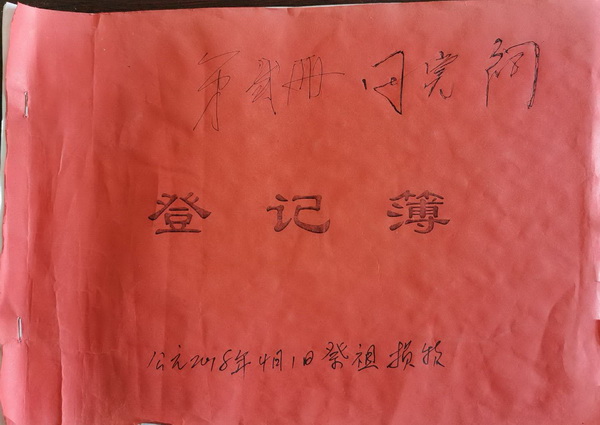 第贰册 周完祠
登记簿
公元2018年4月1日祭祖损物